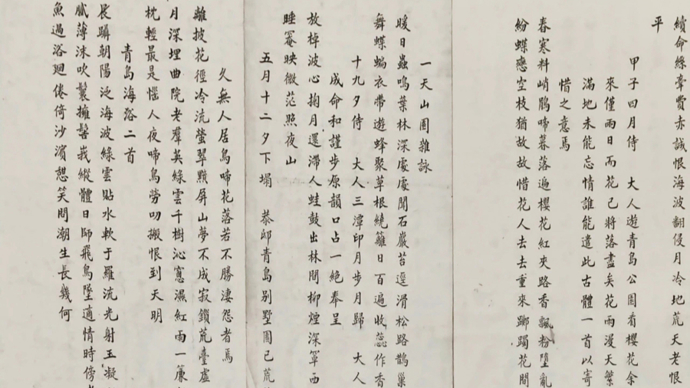 續命絲牽費赤誠恨海波翻侵月冷地荒天老恨
平
甲子四月侍　大人遊青島公園看櫻花余
來僅兩日而花已將落盡矣花雨漫天繁
滿地未能忘情誰能遣此古體一首以寄
惜之意焉
春寒料峭鵑啼暮落遍櫻花紅夾路香飄粉墮亂
紛蝶戀空枝猶故故惜花人去去重來躑躅花間
一天山園雜詠
暖日蟲鳴葉林深處處聞石巖苔逕滑松路鵲巢
舞蝶蹁衣帶遊蜂聚草根繞籬日百遍收蕊作香
十九夕侍　大人三潭印月步月歸　大人
成命和謹步原韻口占一絕奉呈
放棹波心掬月還滯人蛙鼓出林間柳煙深罩西
睡冪映微茫照夜山
五月十二夕下塌　恭邸青島別墅園已荒
久無人居鳥啼花落若不勝淒怨者焉
離披花徑冷流螢翠黯屏山夢不成寂鎖荒臺虛
月深埋曲院老羣英綠雲千樹沁窻濕紅雨一簾
枕輕最是惱人夜啼鳥勞叨搬恨到天明
青島海浴二首
晨曦朝陽泛海波綠雲貼水軟于羅流光射玉凝
膩薄沫吹鬟擁髻峩縱體日師飛鳥墜適情時傍
魚過浴迴倦倚沙濱憩笑問潮生長幾何